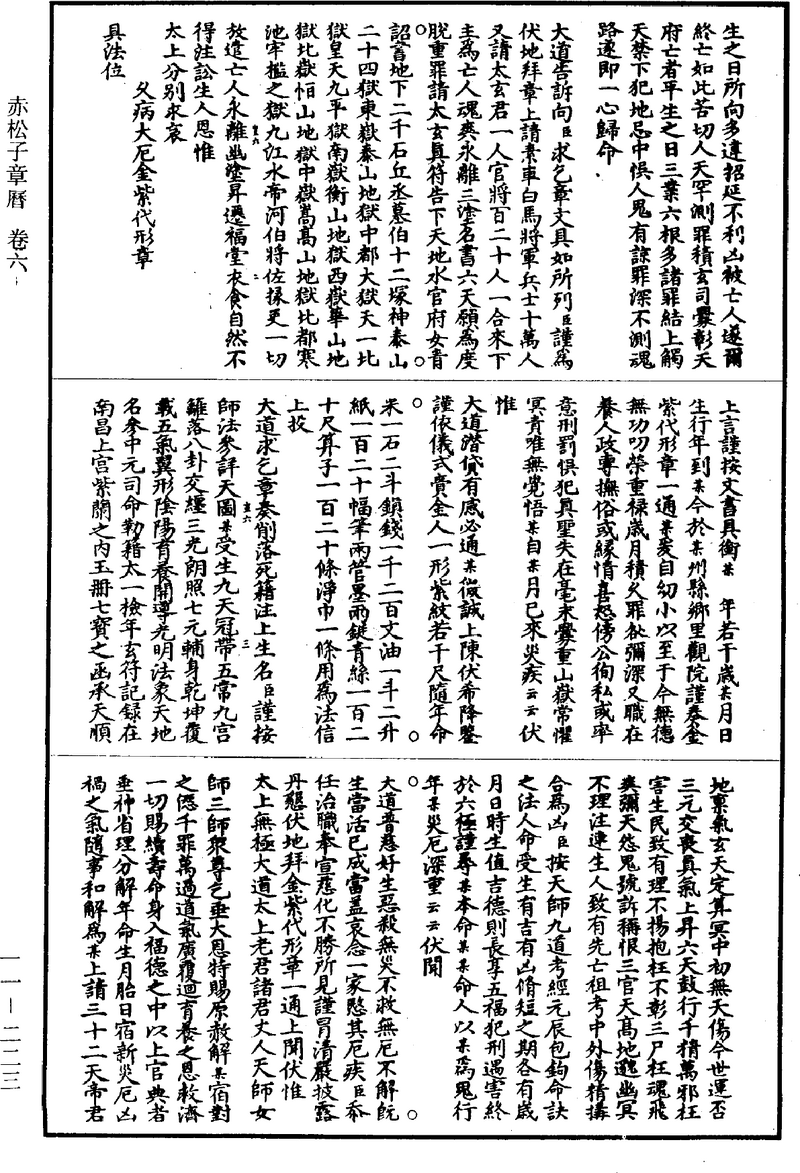 赤松子章曆　卷六
一一－二二三
生之日所向多違招延不利凶被亡人遂爾
終亡如此苦切人天罕測罪積玄司釁彰天
府亡者平生之日三業六根多諸罪結上觸
天禁下犯地忌中悮人鬼有諒罪深不測魂
路遂即一心歸命
大道告訴向臣求乞章文具如所列臣謹為
伏地拜章上請素車白馬將軍兵士十萬人
又請太玄君一人官將百二十人一合來下
主為亡人魂爽永離三塗名書六天願為度
脫重罪請太玄真符告下天地水官府女青
詔書地下二千石丘丞墓伯十二塚神泰山
二十四獄東嶽泰山地獄中都大獄天一北
獄皇天九平獄南嶽衡山地獄西嶽華山地
獄北嶽恒山地獄中嶽嵩高山地獄北都寒
池牢檻之獄九江水帝河伯將佐掾吏一切
放遣亡人永離幽塗昇遷福堂衣食自然不
得注訟生人恩惟
太上分別求哀
久病大厄金紫代形章
具法位
上言謹按文書具銜某　年若干歲某月日
生行年到某今於某州縣鄉里觀院謹奏金
紫代形章一通某爰自幼小以至于今無德
無功叨榮重祿歲月積久罪舩彌深又職在
養人政專撫俗或緣情喜怒傍公徇私或率
意刑罰悮犯真聖失在毫末釁重山嶽常懼
冥責唯無覺悟某自某月已來災疾云云伏
惟
大道潛貸有感必通某微誠上陳伏希降鑒
謹依儀式賫金人一形紫紋若干尺隨年命
米一石二斗鎮錢一千二百文油一斗二升
紙一百二十幅筆兩管墨兩錠青絲一百二
十尺算子一百二十條淨巾一條用為法信
上投
大道求乞章奏削落死籍注上生名臣謹按
師法參詳天圖某受生九天冠帶五常九宮
籬落八卦交經三光朗照七元輔身乾坤覆
載五氣翼形陰陽育養開導光明法象天地
名參中元司命勒籍太一檢年玄符記錄在
南昌上宮紫關之內玉冊七寶之函承天順
地稟氣玄天定算冥中初無夭傷今世運否
三元交喪真氣上昇六天鼓行千精萬邪枉
害生民致有理不揚抱枉不彰三尸枉魂飛
爽彌天怨鬼號訴稱恨三官天高地逈幽冥
不理注連生人致有先亡祖考中外傷精搆
合為凶臣按天師九道考經元辰包鉤命訣
之法人命受生有吉有凶脩短之期各有歲
月日時生值吉德則長享五福犯刑遇害終
於六極謹尋某本命某某命人以某為鬼行
年某災厄深重云云伏聞
大道普慈好生惡殺無災不救無厄不解既
生當活已成當蓋哀念一家愍其厄疾臣忝
任治職奉宣慈化不勝所見謹冒清嚴披露
丹懇伏地拜金紫代形章一通上聞伏惟
太上無極大道太上老君諸君丈人天師女
師三師眾尊乞垂大恩特賜原赦解某宿對
之愆千罪萬過道氣廣覆迴育養之恩救濟
一切賜續壽命身入福德之中以上官典者
垂神省理分解年命生月胎日宿新災厄凶
禍之氣隨事和解為某上請三十二天帝君